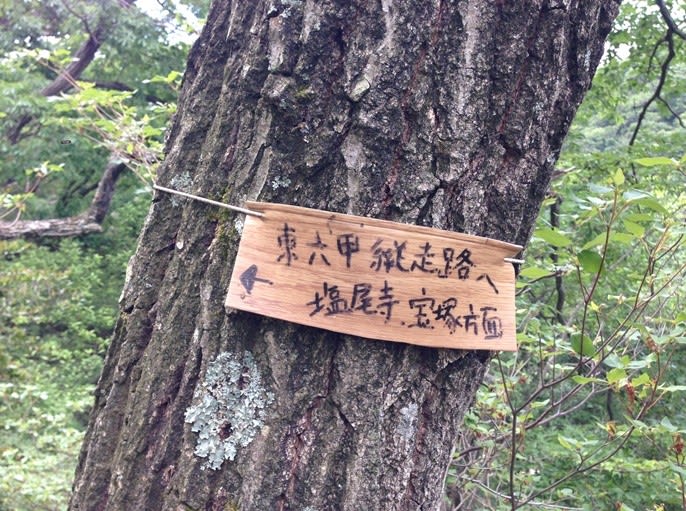 東六甲縦走路へ
← 塩尾寺、宝塚方面